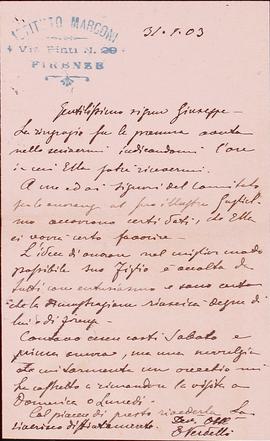 ISTITUTO MARCONI
Via Pinti N. 29
FIRENZE
31.8.03
Gentilissimo signor Giuseppe -
La ringrazio per la premura avuta
nello scrivermi indicandomi l'ora
in cui Ella potrà ricevermi.
A me ed ai signori del Comitato
per le onoranze al suo illustre Guglielmo
occorrono certi dati, che Ella
ci vorrà certo favorire.
L'idea di onorare nel miglior modo
possibile suo Figlio è accolta da
tutti con entusiasmo e sono certo
che la dimostrazione riuscirà degna
di lui e di Firenze.
Contavo venir costì Sabato e
prima ancora, ma una
un
ha costretto a rimandare la visita a
Domenica o Lunedì.
Col piacere di presto rivederla La
riverisco distintamente.